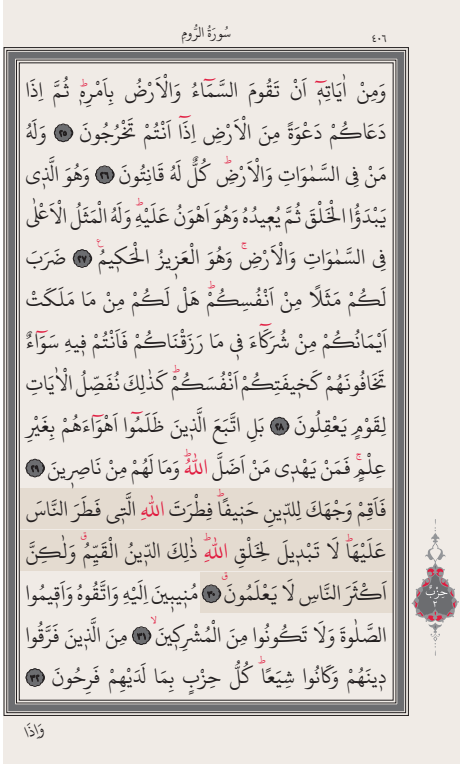 سُورَةُ الرُّومِ
٤٠٦
وَمِنْ اٰيَاتِهٖٓ اَنْ تَقُومَ السَّمَٓاءُ وَالْاَرْضُ بِاَمْرِهٖۜ ثُمَّ اِذَا
دَعَاكُمْ دَعْوَةً مِنَ الْاَرْضِ اِذَٓا اَنْتُمْ تَخْرُجُونَ ﴿٢٥﴾ وَلَهُ
مَنْ فِي السَّمٰوَاتِ وَالْاَرْضِۜ كُلٌّ لَهُ قَانِتُونَ ﴿٢٦﴾ وَهُوَ الَّذ۪ي
يَبْدَؤُا الْخَلْقَ ثُمَّ يُع۪يدُهُ وَهُوَ اَهْوَنُ عَلَيْهِۜ وَلَهُ الْمَثَلُ الْاَعْلٰى
فِي السَّمٰوَاتِ وَالْاَرْضِۚ وَهُوَ الْعَز۪يزُ الْحَك۪يمُ۟ ﴿٢٧﴾ ضَرَبَ
لَكُمْ مَثَلًا مِنْ اَنْفُسِكُمْۜ هَلْ لَكُمْ مِنْ مَا مَلَكَتْ
اَيْمَانُكُمْ مِنْ شُرَكَٓاءَ ف۪ي مَا رَزَقْنَاكُمْ فَاَنْتُمْ ف۪يهِ سَوَٓاءٌ
تَخَافُونَهُمْ كَخ۪يفَتِكُمْ اَنْفُسَكُمْۜ كَذٰلِكَ نُفَصِّلُ الْاٰيَاتِ
لِقَوْمٍ يَعْقِلُونَ ﴿٢٨﴾ بَلِ اتَّبَعَ الَّذ۪ينَ ظَلَمُٓوا اَهْوَٓاءَهُمْ بِغَيْرِ
عِلْمٍۚ فَمَنْ يَهْد۪ي مَنْ اَضَلَّ اللّٰهُۜ وَمَا لَهُمْ مِنْ نَاصِر۪ينَ ﴿٢٩﴾
فَاَقِمْ وَجْهَكَ لِلدّ۪ينِ حَن۪يفًاۜ فِطْرَتَ اللّٰهِ الَّت۪ي فَطَرَ النَّاسَ
عَلَيْهَاۜ لَا تَبْد۪يلَ لِخَلْقِ اللّٰهِۜ ذٰلِكَ الدّ۪ينُ الْقَيِّمُۗ وَلٰكِنَّ
اَكْثَرَ النَّاسِ لَا يَعْلَمُونَۗ ﴿٣٠﴾ مُن۪يب۪ينَ اِلَيْهِ وَاتَّقُوهُ وَاَق۪يمُوا
الصَّلٰوةَ وَلَا تَكُونُوا مِنَ الْمُشْرِك۪ينَۙ ﴿٣١﴾ مِنَ الَّذ۪ينَ فَرَّقُوا
د۪ينَهُمْ وَكَانُوا شِيَعًاۜ كُلُّ حِزْبٍ بِمَا لَدَيْهِمْ فَرِحُونَ ﴿٣٢﴾
حِزْبْ
٢
وَاِذَا